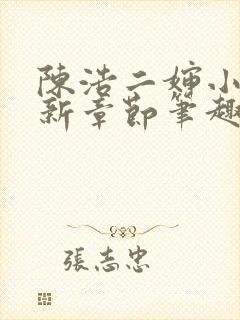 陳浩二婶小
新章節筆趣
張志忠